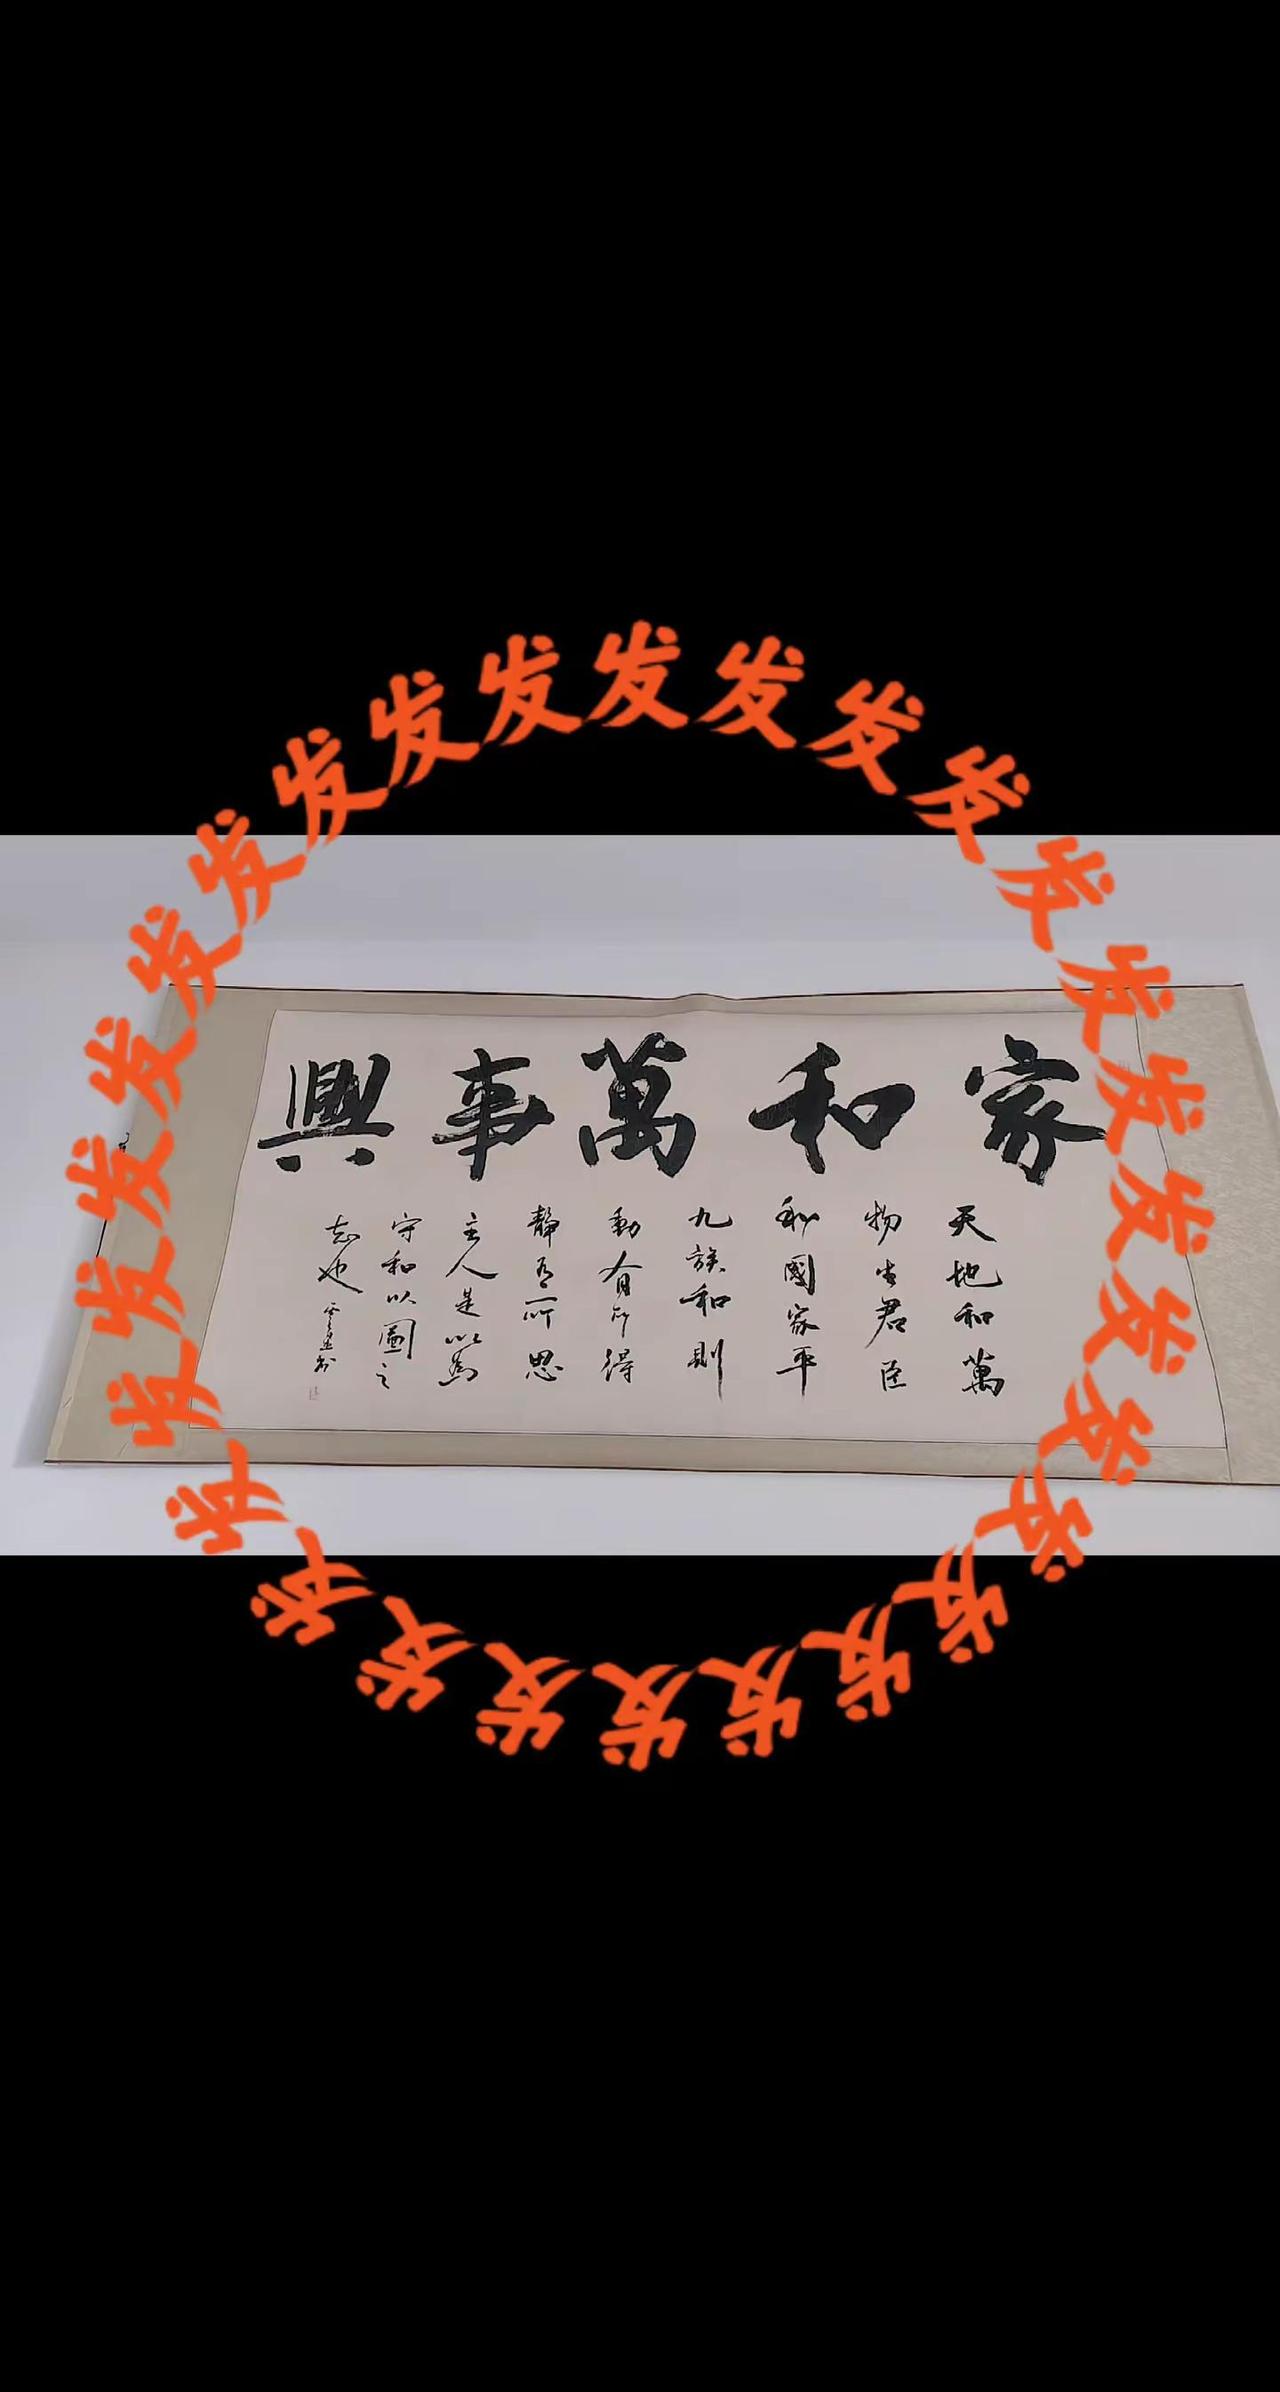 发发发发发发发发发发发发发发发发发发发发发发发发发发发发
家和萬事興
天地和萬
物生君臣
和國家平
九族和則
動有所得
靜有所思
主人是以為
守和以圖之
志也